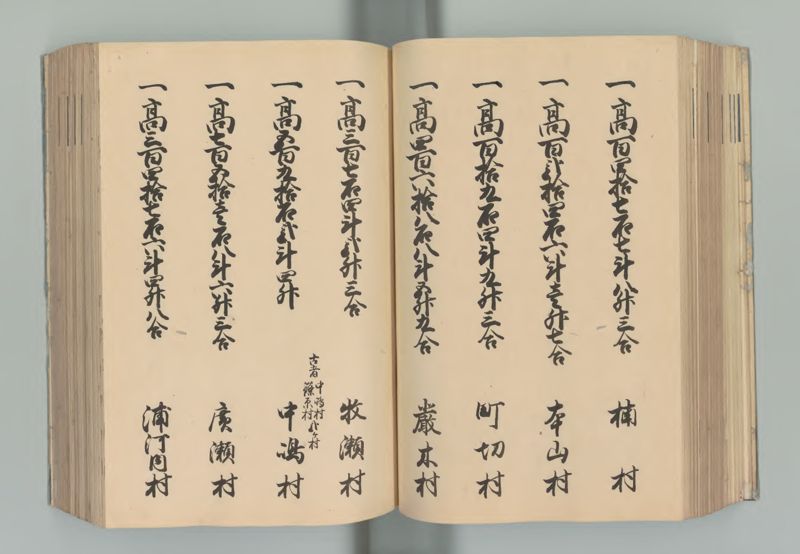 一高百四拾七石七斗八升三合 楠村
一高百弐拾四石六斗壱升七合 本山村
一高百拾五石四斗九升三合 町切村
一高四百六拾八石八斗五升九合 嚴木村
一高三百七石四斗弐升三合 牧瀬村
古者 中嶋村
篠原村
一高五百九拾石弐斗四升 中嶋村
一高七百五拾壱石八斗六升三合 廣瀬村
一高三百四拾七石六斗四升八合 浦河内村